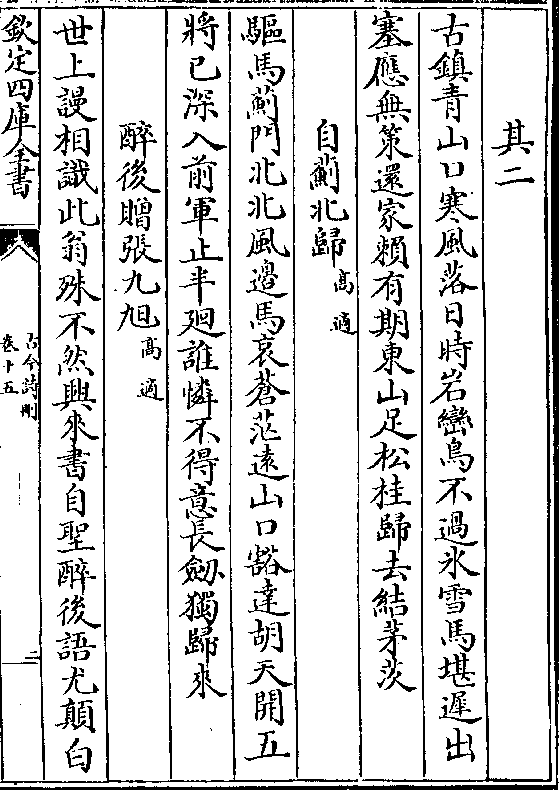 其二
古鎮青山口寒風落日時岩巒鳥不過氷雪馬堪遲出
塞應無策還家賴有期東山足松桂歸去結茅茨
自薊北歸高適
驅馬薊門北北風邊馬哀蒼茫遠山口豁達胡天開五
將已深入前軍止半廻誰憐不得意長劒獨歸來
醉後贈張九旭高適
世上謾相識此翁殊不然興來書自聖醉後語尤顛白
欽定四庫全書
古今詩刪
卷十五
二